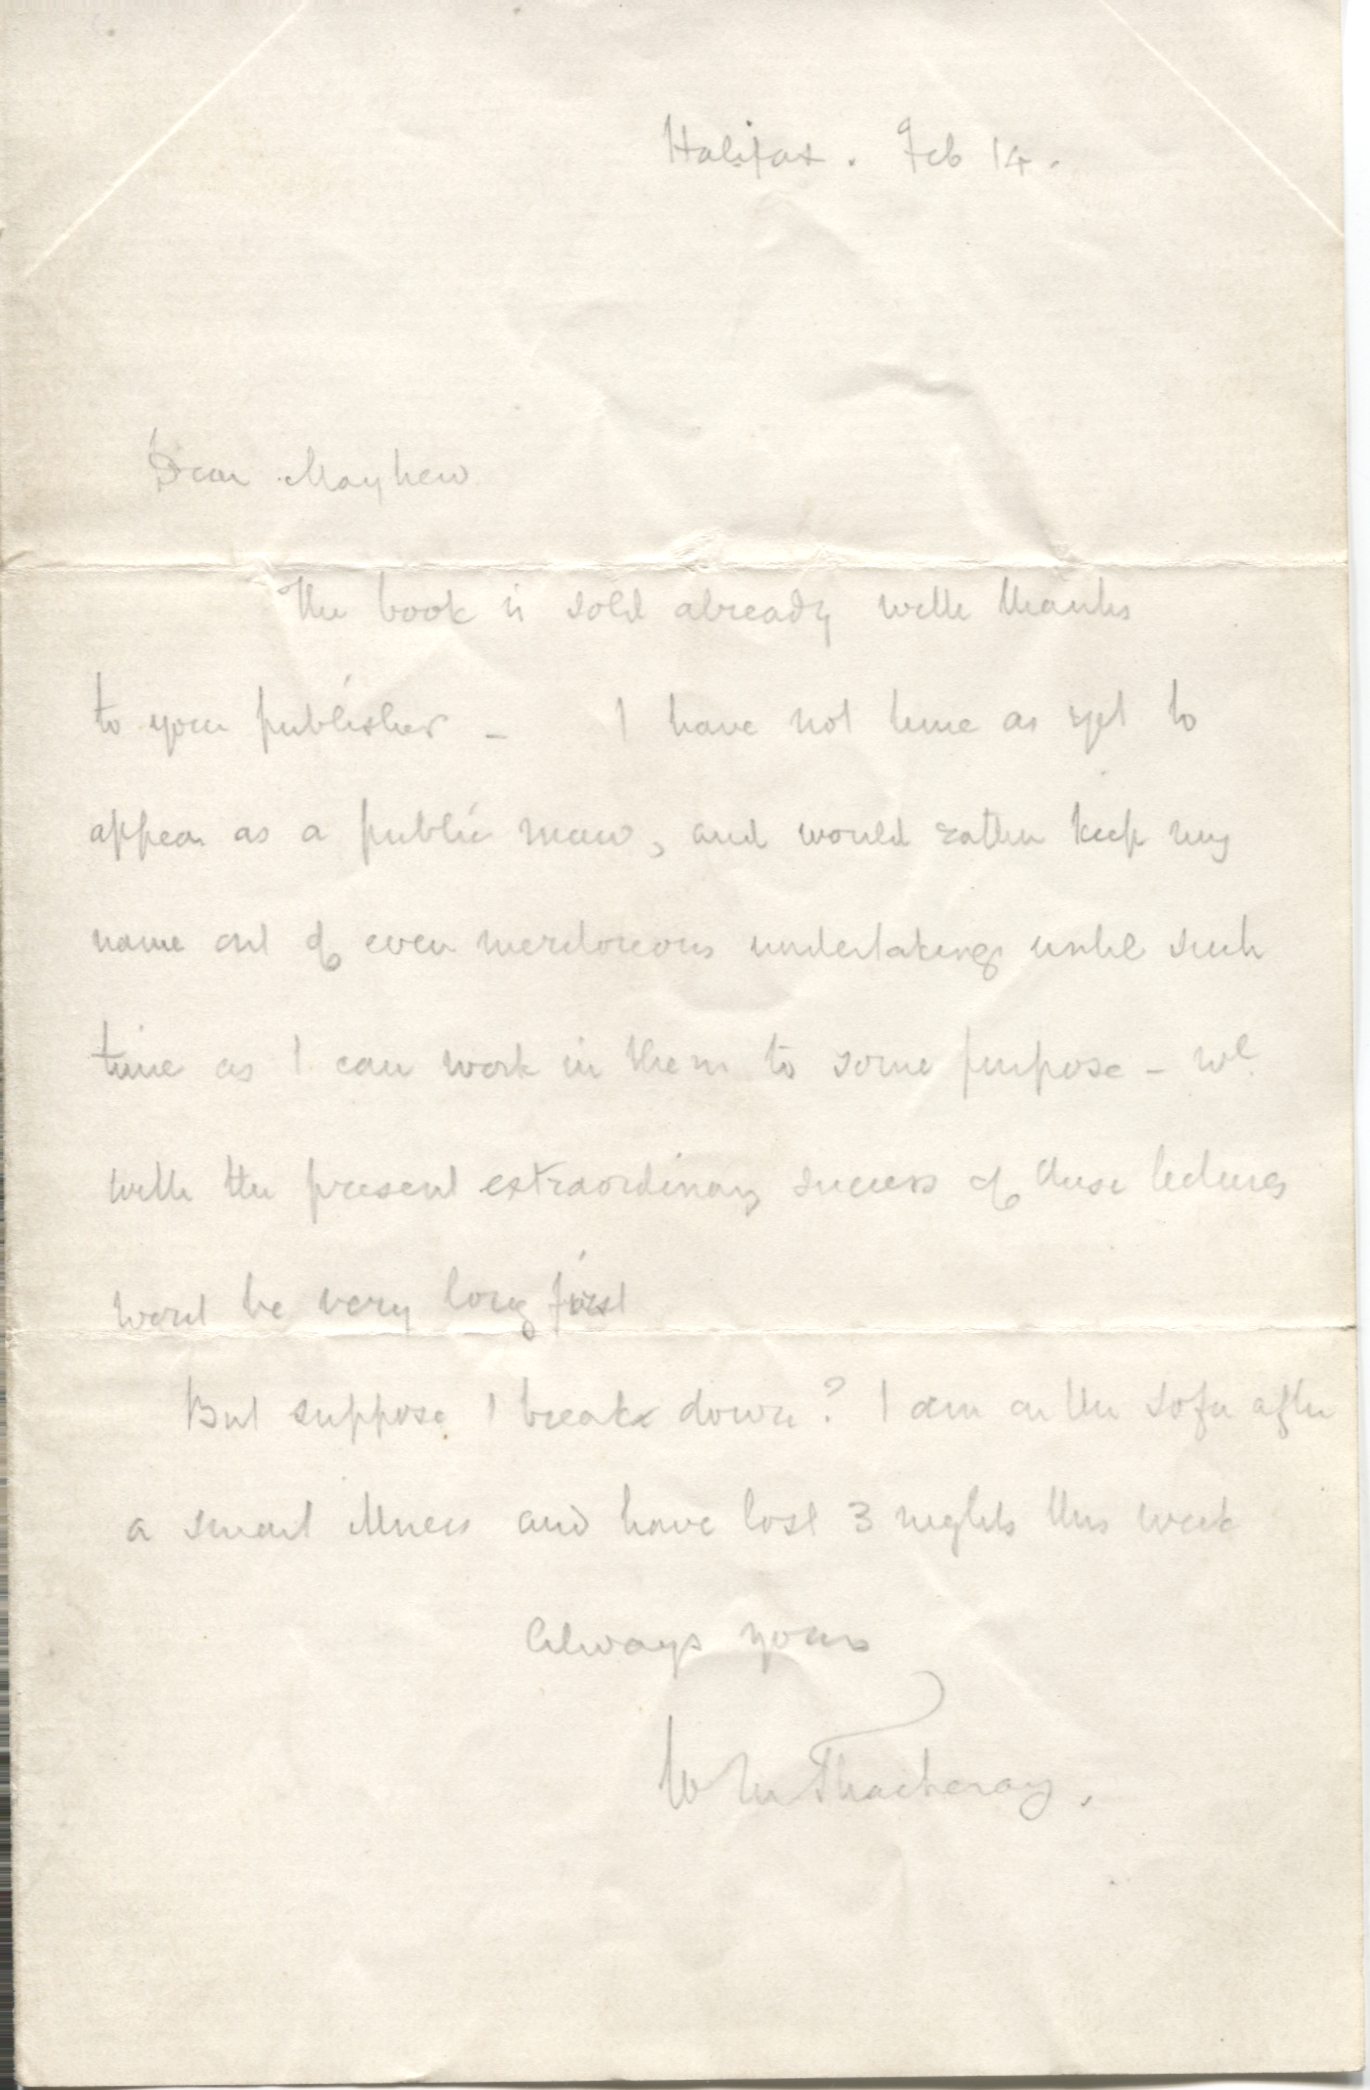 Halifax. Feb 14.
Dear Mayhew
The book is sold already with thanks
to your publisher - I have not time as yet to
appear as a public man, and would rather keep my
name out of even meritorious undertakings until such
time as I can work in them to some purpose - wh.
with the present extraordinary success of these lectures
wont be very long first
But suppose I break down? I am on the sofa after
a smart illness and have lost 3 nights this week
Always yours
W M Thackeray.